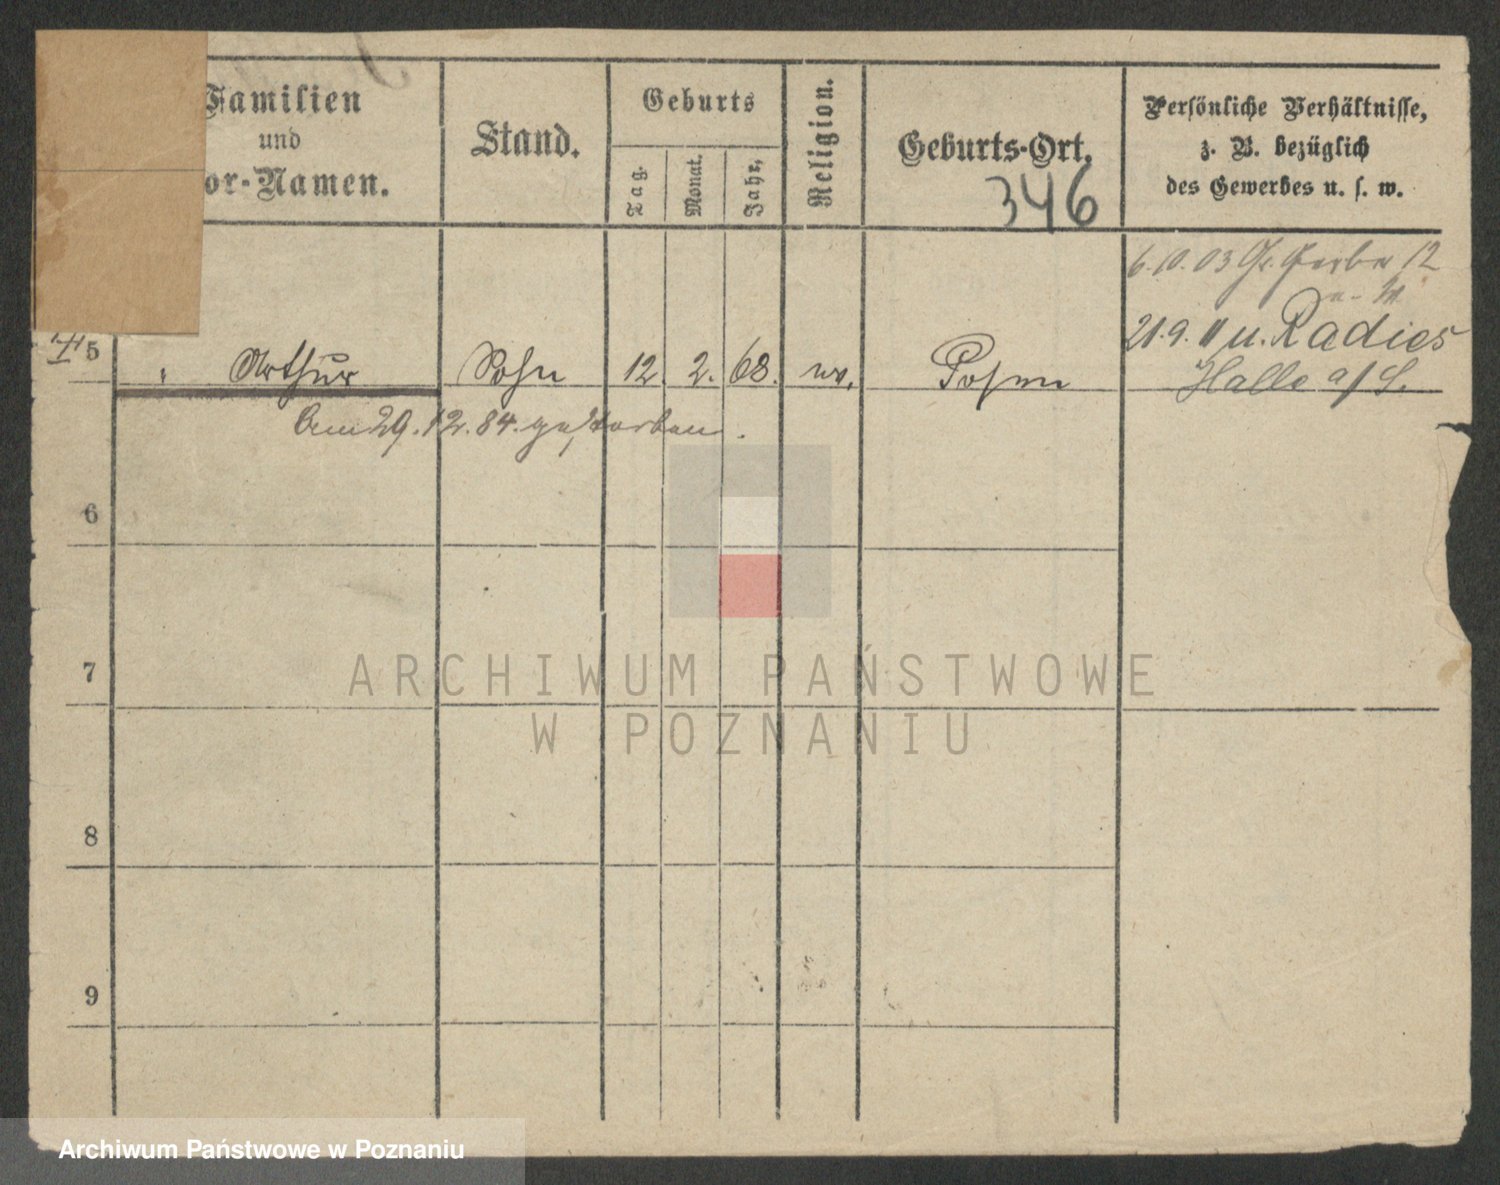 Familien
und
or-Namen.
Stand.
Geburts
Tag.
Monat.
Jahr.
Religion.
Geburts-Ort.
346
Persönliche Verhältnisse,
z. B. bezüglich
des Gewerbes u. s. w.
6.10.03 Gr. Gerber 12
21.9.11 u. Radies
Halle a/S.
5 Arthur Sohn 12. 2. 68. Posen
Am 29.12.84. gestorben.
6
7
8
9
ARCHIWUM PAŃSTWOWE
W POZNANIU
Archiwum Państwowe w Poznaniu